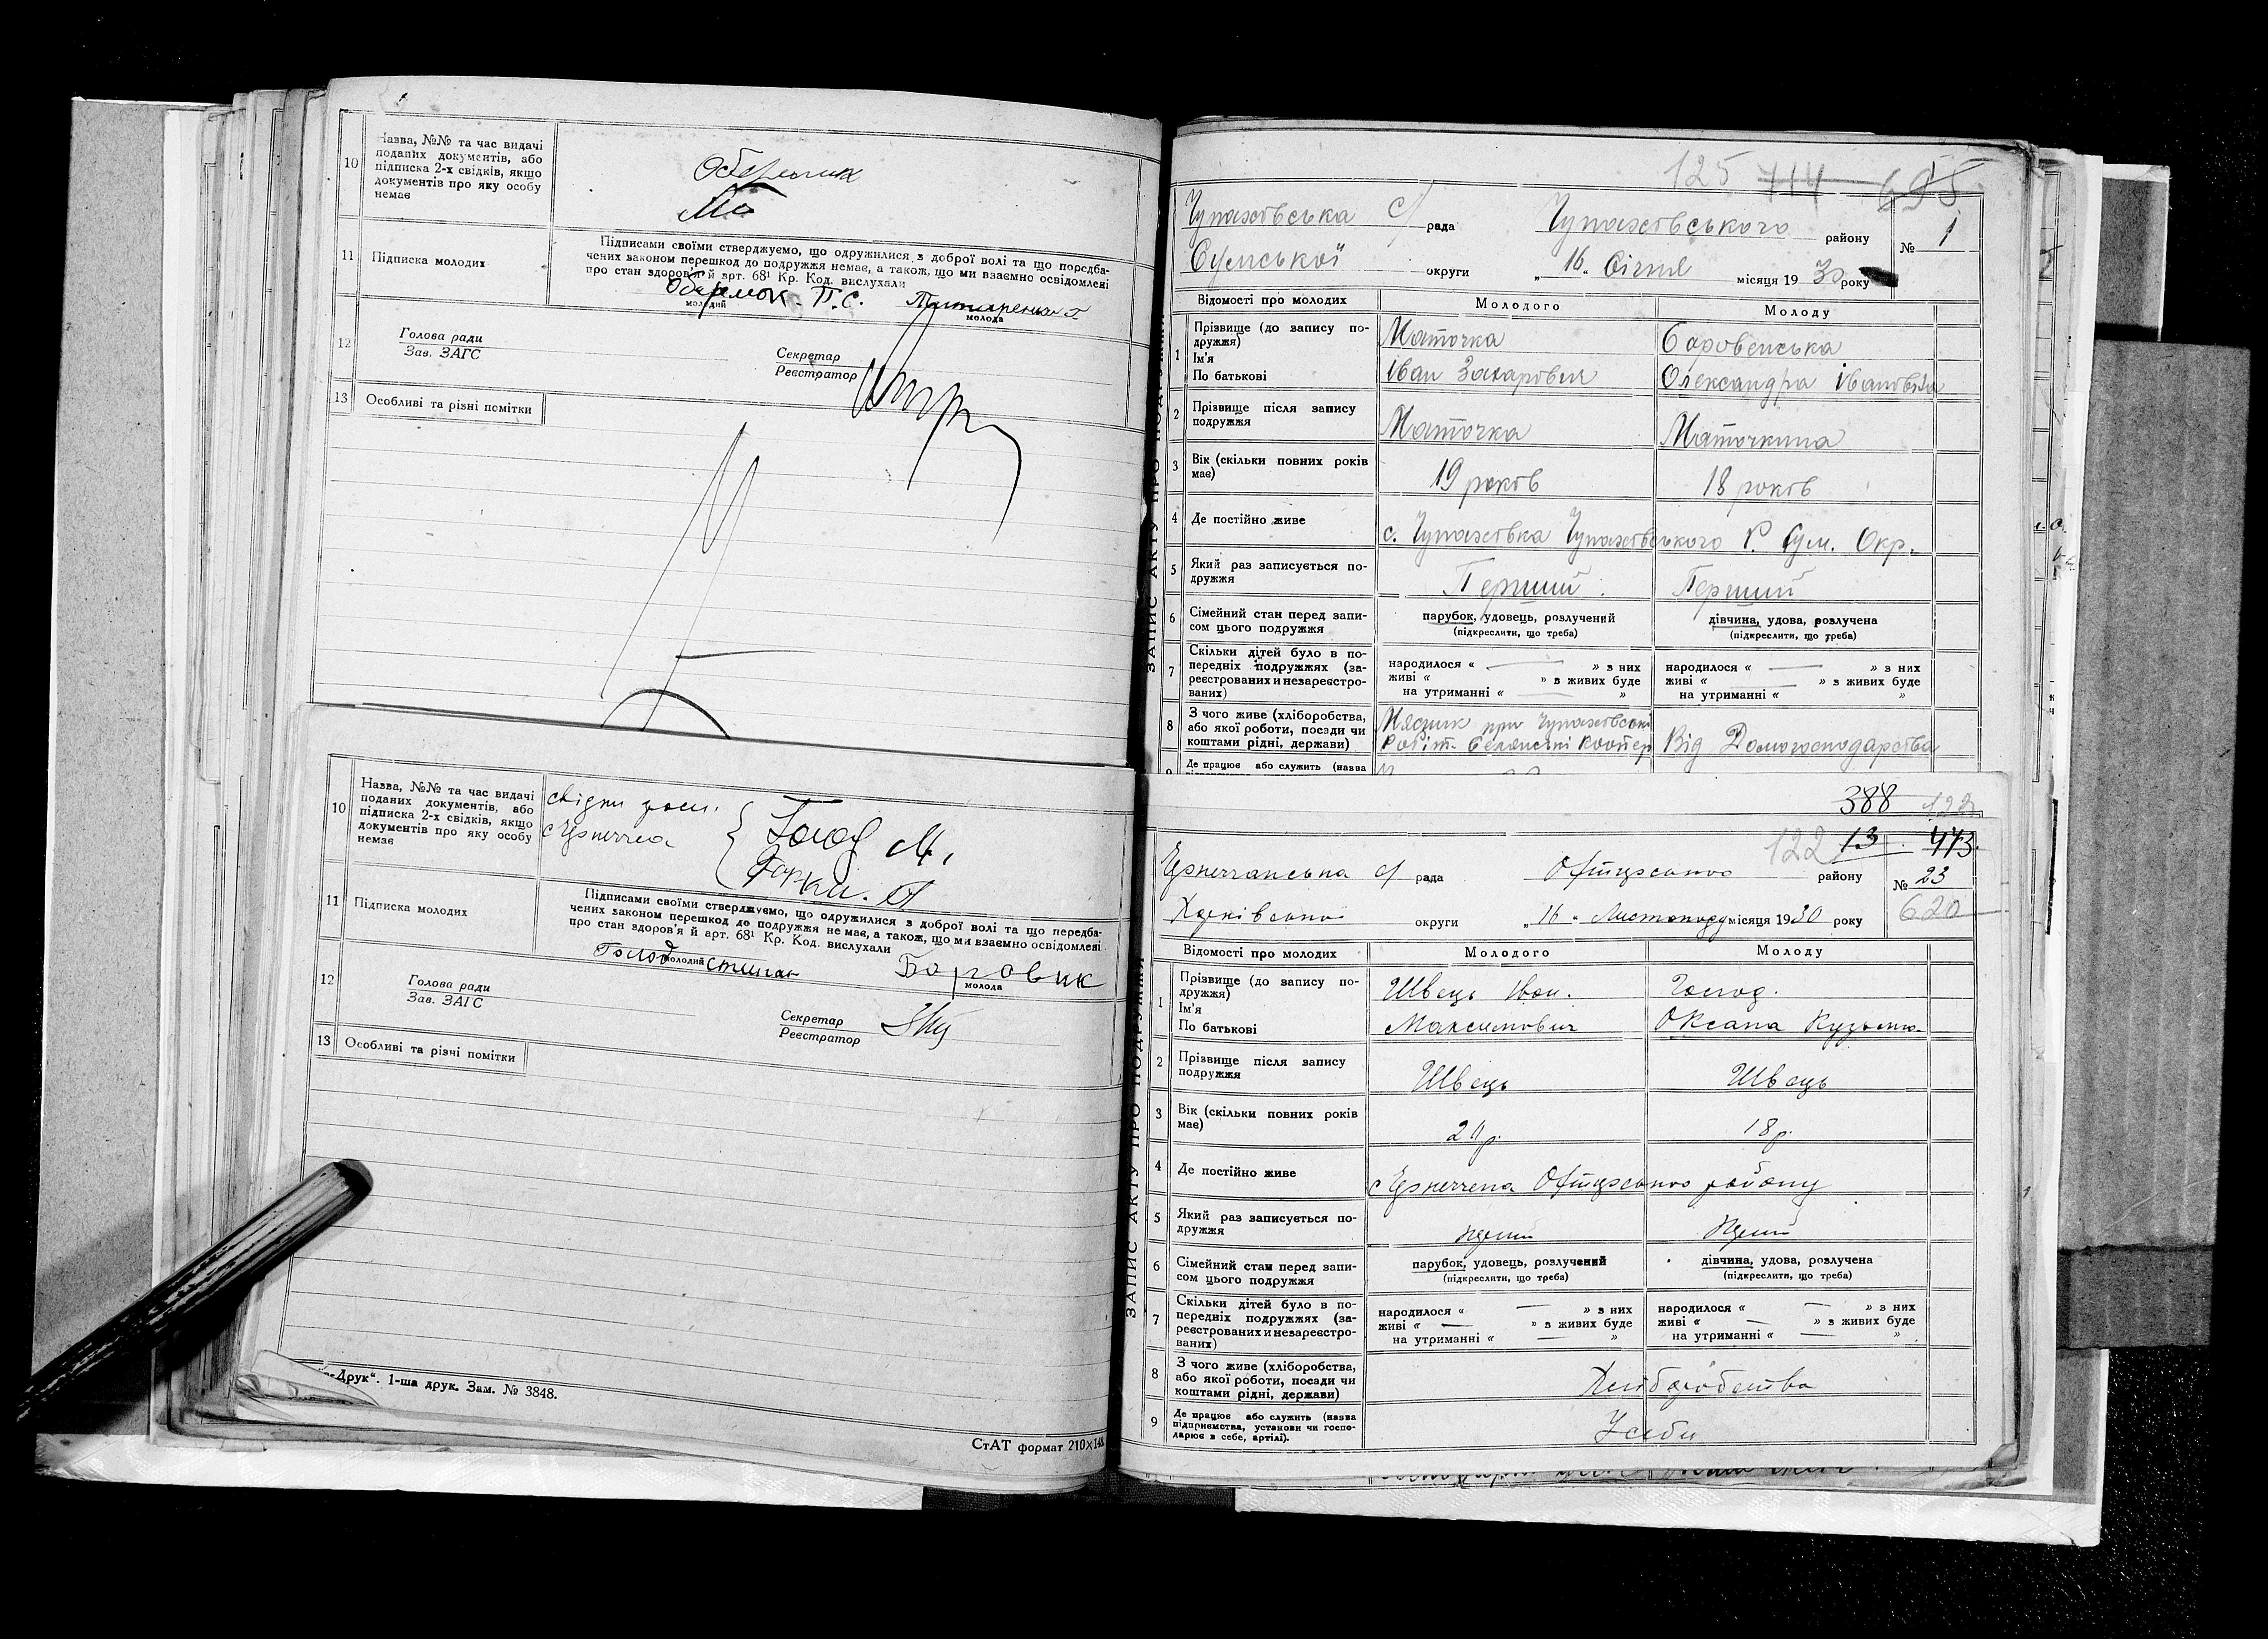 10
Назва, №№ та час видачі
поданих документів, або
підписка 2-х свідків, якщо
документів про яку особу
немає
11
Підписка молодих
Підписами своїми стверджуємо, що одружилися з доброї волі та що передба-
чених законом перешкод до подружжя немає, а також, що ми взаємно освідомлені
про стан здоров'я й арт. 68¹ Кр. Код. вислухали
Оберемок П.С.
молодий
молода
12
Голова ради
Зав. ЗАГС
Секретар
Реєстратор
13
Особливі та різні помітки
10
Назва, №№ та час видачі
поданих документів, або
підписка 2-х свідків, якщо
документів про яку особу
немає
свідки
Голод М.
11
Підписка молодих
Підписами своїми стверджуємо, що одружилися з доброї волі та що передба-
чених законом перешкод до подружжя не має, а також, що ми взаємно освідомлені
про стан здоров'я й арт. 68¹ Кр. Код. вислухали
Голод Степан Боровик
молодий
молода
12
Голова ради
Зав. ЗАГС
Секретар
Реєстратор
13
Особливі та різні помітки
-Друк". 1-ша друк. Зам. № 3848.
СтАТ формат 210×148
125 714 695
Чупахівська с/ рада Чупахівського району № 1
Сумської округи „ 16 „ Січня місяця 1930 року
ЗАПИС АКТУ ПРО ПОДРУЖЖЯ
Відомості про молодих
Молодого
Молоду
1
Прізвище (до запису по-
дружжя)
Ім'я
По батькові
Маточка
Іван Захарович
Боровенська
Олександра Івановна
2
Прізвище після запису
подружжя
Маточка
Маточкина
3
Вік (скільки повних років
має)
19 років
18 років
4
Де постійно живе
с. Чупахівка Чупахівського Р. Сум. Окр.
5
Який раз записується по-
дружжя
Перший
Перший
6
Сімейний стан перед запи-
сом цього подружжя
парубок, удовець, розлучений
(підкреслити, що треба)
дівчина, удова, розлучена
(підкреслити, що треба)
7
Скільки дітей було в по-
передніх подружжях (за-
реєстрованих и незареєстро-
ваних)
народилося « » з них
живі « » з живих буде
на утриманні « »
народилося « » з них
живі « » з живих буде
на утриманні « »
8
З чого живе (хліборобства,
або якої роботи, посади чи
коштами рідні, держави)
Мясник при Чупахівські
Робіт. Селянські Коопер
Від Домогосподарства
Де працює або служить (назва
388 123
122 13 473
с/ рада Охтирського району № 23
Харківської округи „ 16 „ Листопаду місяця 1930 року
620
ЗАПИС АКТУ ПРО ПОДРУЖЖЯ
Відомості про молодих
Молодого
Молоду
1
Прізвище (до запису по-
дружжя)
Ім'я
По батькові
Швець Іван.
Максимович
Голод.
Оксана Кузьмів.
2
Прізвище після запису
подружжя
Швець
Швець
3
Вік (скільки повних років
має)
20 р.
18 р.
4
Де постійно живе
Охтирського району
5
Який раз записується по-
дружжя
перший
перший
6
Сімейний стан перед запи-
сом цього подружжя
парубок, удовець, розлучений
(підкреслити, що треба)
дівчина, удова, розлучена
(підкреслити, що треба)
7
Скільки дітей було в по-
передніх подружжях (за-
реєстрованих и незареєстро-
ваних)
народилося « — » з них
живі « — » з живих буде
на утриманні « — »
народилося « — » з них
живі « — » з живих буде
на утриманні « — »
8
З чого живе (хліборобства,
або якої роботи, посади чи
коштами рідні, держави)
Хліборобства
9
Де працює або служить (назва
підприємства, установи чи госпо-
дарює в себе, артілі).
У себе